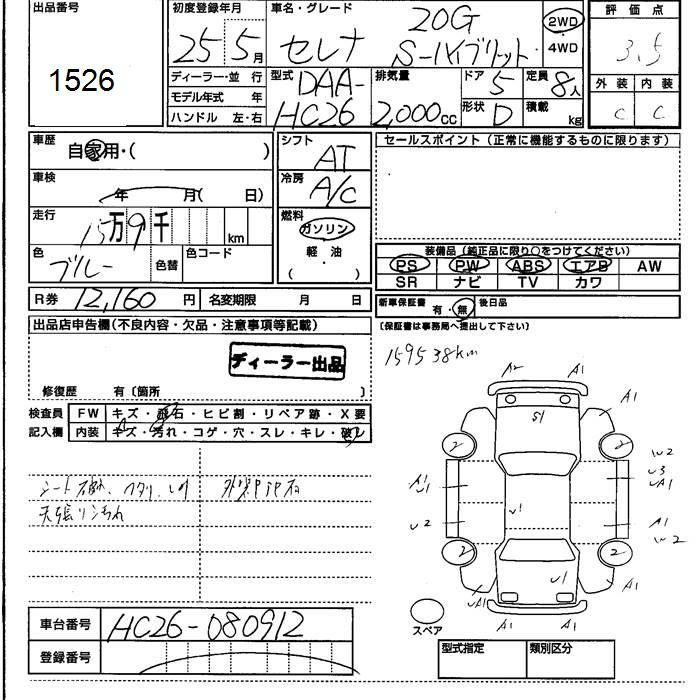 出品番号
1526
初度登録年月
25 5月
車名・グレード
20G
セレナ S-ハイブリット
2WD
4WD
評価点
3.5
外装 内装
C C
ディーラー・並行
モデル年式 年
ハンドル 左・右
型式
DAA-
HC26
排気量
2,000cc
ドア 5
形状 D
定員 8人
積載 kg
車歴
自家用・( )
車検
年 月( 日)
走行
15万9千 km
色
ブルー
色替
色コード
シフト
AT
冷房
A/C
燃料
ガソリン
軽油
( ・ )
セールスポイント(正常に機能するものに限ります)
装備品(純正品に限り○をつけてください)
PS PW ABS エアB AW
SR ナビ TV カワ
R券 12,160 円
名変期限 月 日
新車保証書 有・無
後日品
(保証書は事務局へ提出して下さい)
出品店申告欄(不良内容・欠品・注意事項等記載)
ディーラー出品
修復歴 有〔箇所 〕
159538km
検査員
記入欄
FW キズ・飛石・ヒビ割・リペア跡・X要
内装 キズ・汚れ・コゲ・穴・スレ・キレ・破レ
天張リ汚れ
A2 A1
A1 A1
S1
2 2
W2
U3
UA1
A1
U1
U1
U2
A1
W2
2 2
U1
UA1 A1
A1 A1
スペア
車台番号
HC26-080912
登録番号
型式指定
類別区分